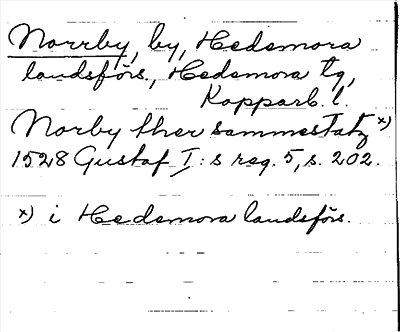 Norrby, by, Hedemora
landsförs., Hedemora tg,
Kopparb. l.
Norby ther sammestatz x)
1528 Gustaf I:s reg. 5, s. 202.
x) i Hedemora landsförs.